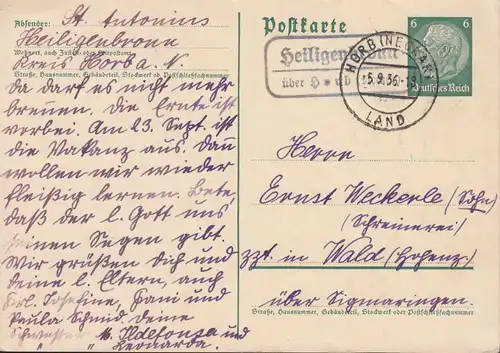 Absender:
St. Antonius
Heiligenbronn
Wohnort, auch Zustell- oder Leitpostamt
Kreis Horb a. N.
Straße, Hausnummer, Gebäudeteil, Stockwerk od. Postschließfachnummer
Da darf es nicht mehr
brennen. Die Ernte ist
vorbei. Am 23. Sept. ist
die Vakanz aus. Dan
wollen wir wieder
fleißig lernen. Bete,
daß der l. Gott uns
seinen Segen gibt.
Wir grüßen Dich und
deine l. Eltern, auch
Frl. Josefine, Fani und
Paula Schmid, deine
Schwester M. Ildefonsa und
" " Leonarda.
Postkarte
6 6
Deutsches Reich
Heiligenbronn
über Horb
HORB (NECKAR)
5.9.36
LAND
Herrn
Ernst Weckerle (Sohn)
(Schreinerei)
zzt. in Wald (Hohenz.)
über Sigmaringen.
Straße, Hausnummer, Gebäudeteil, Stockwerk oder Postschließfachnummer